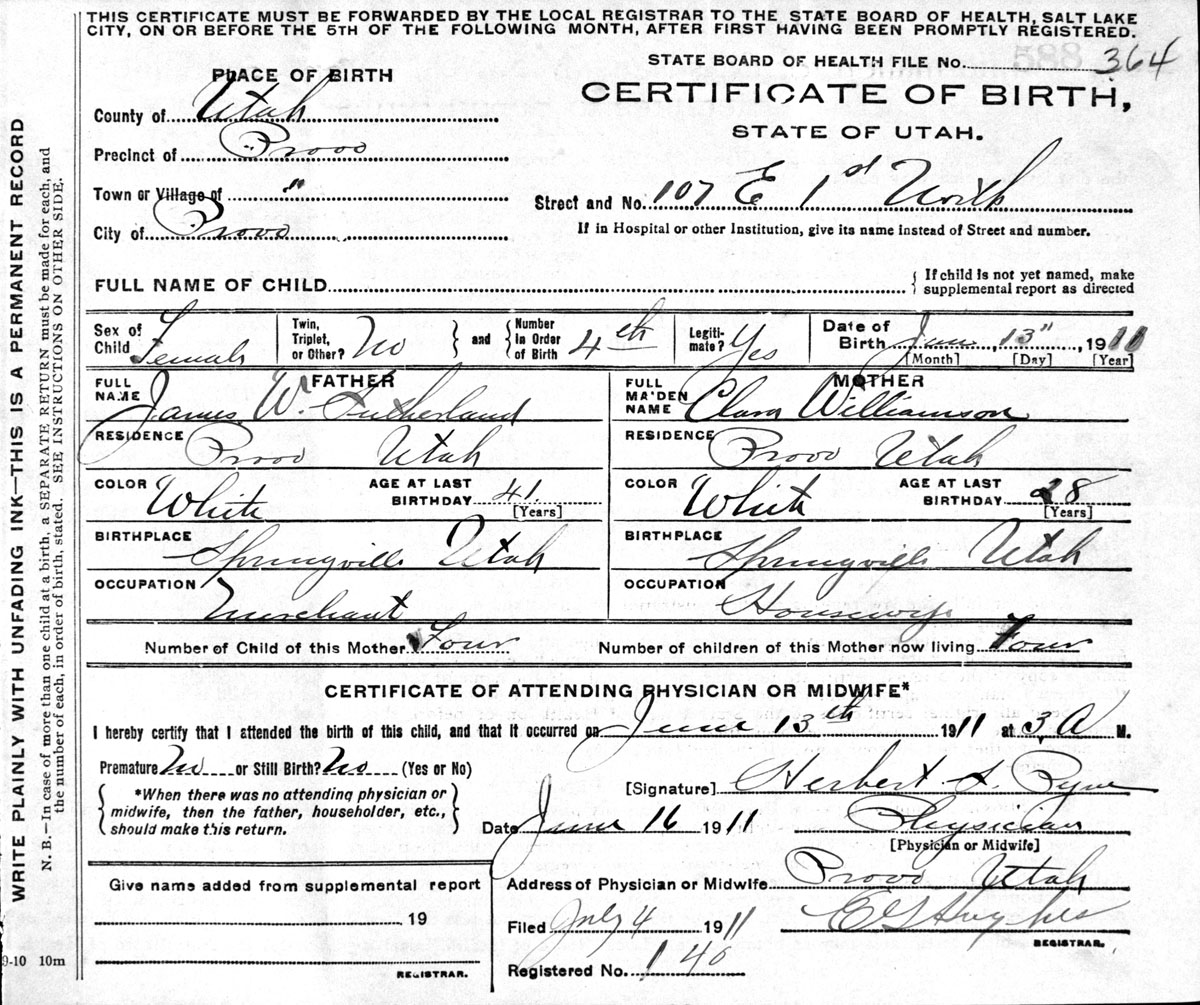 THIS CERTIFICATE MUST BE FORWARDED BY THE LOCAL REGISTRAR TO THE STATE BOARD OF HEALTH, SALT LAKE
CITY, ON OR BEFORE THE 5TH OF THE FOLLOWING MONTH, AFTER FIRST HAVING BEEN PROMPTLY REGISTERED.
WRITE PLAINLY WITH UNFADING INK—THIS IS A PERMANENT RECORD
N. B.—In case of more than one child at a birth, a SEPARATE RETURN must be made for each, and
the number of each, in order of birth, stated. SEE INSTRUCTIONS ON OTHER SIDE.
9-10 10m
STATE BOARD OF HEALTH FILE No. 364
PLACE OF BIRTH
CERTIFICATE OF BIRTH,
STATE OF UTAH.
County of Utah
Precinct of Provo
Town or Village of "
Street and No. 107 E 1st North
City of Provo
If in Hospital or other Institution, give its name instead of Street and number.
FULL NAME OF CHILD
If child is not yet named, make
supplemental report as directed
Sex of Child Female
Twin, Triplet, or Other? No
and Number in Order of Birth 4th
Legiti- mate? Yes
Date of Birth June 13", 1911
[Month] [Day] [Year]
FATHER
FULL NAME James W. Sutherland
MOTHER
FULL MAIDEN NAME Clara Williamson
RESIDENCE Provo Utah
RESIDENCE Provo Utah
COLOR White AGE AT LAST BIRTHDAY 41 [Years]
COLOR White AGE AT LAST BIRTHDAY 28 [Years]
BIRTHPLACE Springville Utah
BIRTHPLACE Springville Utah
OCCUPATION Merchant
OCCUPATION Housewife
Number of Child of this Mother Four
Number of children of this Mother now living Four
CERTIFICATE OF ATTENDING PHYSICIAN OR MIDWIFE*
I hereby certify that I attended the birth of this child, and that it occurred on June 13th 1911 at 3 A M.
Premature No or Still Birth? No (Yes or No)
*When there was no attending physician or
midwife, then the father, householder, etc.,
should make this return.
[Signature] Herbert S. Pyne
Date June 16 1911
Physician
[Physician or Midwife]
Give name added from supplemental report
19
REGISTRAR.
Address of Physician or Midwife Provo Utah
Filed July 4 1911 E G Hughes
REGISTRAR.
Registered No. 140